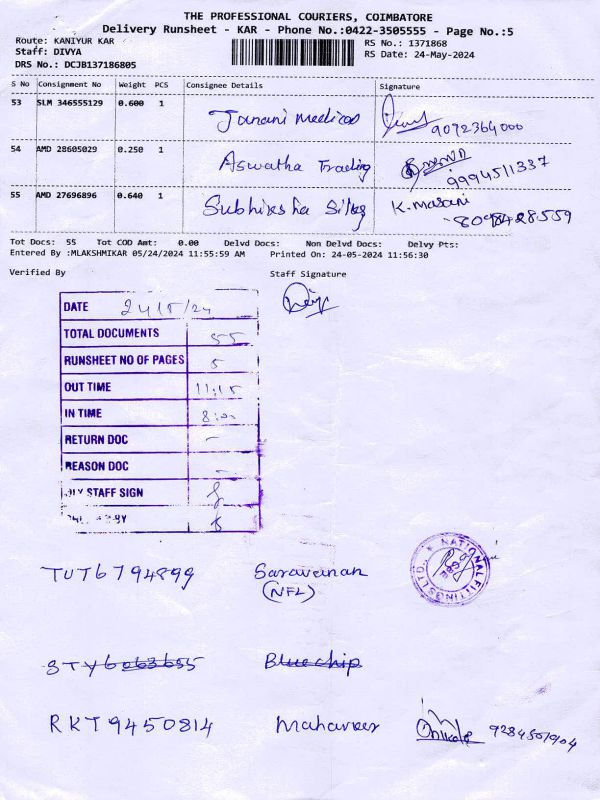 THE PROFESSIONAL COURIERS, COIMBATORE
Delivery Runsheet - KAR - Phone No.:0422-3505555 - Page No.:5
Route: KANIYUR KAR
Staff: DIVYA
DRS No.: DCJB137186805
RS No.: 1371868
RS Date: 24-May-2024
S No Consignment No Weight PCS Consignee Details Signature
53 SLM 346555129 0.600 1 Janani medicas 9072364000
54 AMD 28605029 0.250 1 Aswatha Trading 9994511337
55 AMD 27696896 0.640 1 Subhiksha Silks K. Masani
Tot Docs: 55 Tot COD Amt: 0.00 Delvd Docs: Non Delvd Docs: Delvy Pts:
Entered By :MLAKSHMIKAR 05/24/2024 11:55:59 AM Printed On: 24-05-2024 11:56:30
Verified By Staff Signature
DATE 24/5/24
TOTAL DOCUMENTS 55
RUNSHEET NO OF PAGES 5
OUT TIME 11:15
IN TIME 8:00
RETURN DOC -
REASON DOC -
STAFF SIGN
BY
TUT6794899 Saravanan
(NFL)
NATIONAL FITTINGS LTD.,
STY6063655 Bluechip
RKT9450814 Mahaveer 9284507904